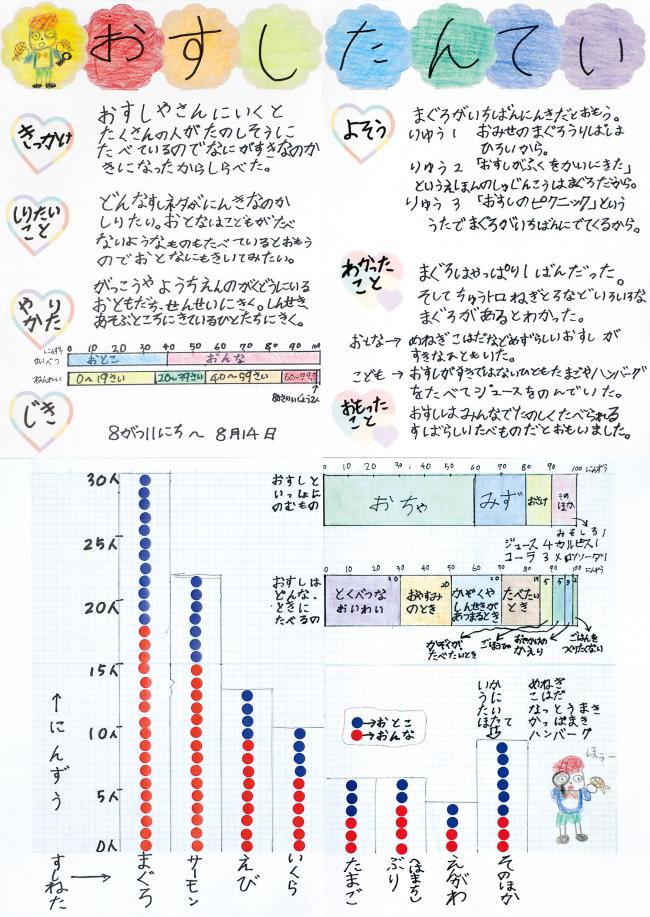 おすしたんてい
きっかけ
おすしやさんにいくと
たくさんの人がたのしそうに
たべているのでなにがすきなのか
きになったからしらべた。
しりたい
こと
どんなすしネタがにんきなのか
しりたい。おとなはこどもがたべ
ないようなものもたべているとおもう
のでおとなにもきいてみたい。
やり
かた
がっこうやようちえんのがくどうにいる
おともだち、せんせいにきく。しんせき
あそぶところにきているひとたちにきく。
0 10 20 30 40 50 60 70 80 90 100 にんずう
せいべつ おとこ おんな
ねんれい 0〜19さい 20〜39さい 40〜59さい
80さいいじょう2人
じき
8がつ11にち〜 8月14日
よそう
まぐろがいちばんにんきだとおもう。
りゆう1 おみせのまぐろうりばは
ひろいから。
りゆう2 「おすしがふくをかいにきた」
というえほんのしゅじんこうはまぐろだから。
りゆう3 「おすしのピクニック」という
うたでまぐろがいちばんにでてくるから。
わかった
こと
まぐろはやっぱり1ばんだった。
そしてちゅうトロねぎとろなどいろいろな
まぐろがあるとわかった。
おとな→めねぎこはだなどめずらしいおすしが
すきなひともいた。
こども→おすしがすきではないひともたまごやハンバーグ
をたべてジュースをのんでいた。
おもった
こと
おすしはみんなでたのしくたべられる
すばらしいたべものだとおもいました。
30人
25人
20人
15人
10人
5人
0人
↑にんずう
すしねた→
まぐろ
サーモン
えび
いくら
たまご
ぶり
(はまち)
えんがわ
そのほか
おすしと
いっしょに
のむもの
0 10 20 30 40 50 60 70 80 90 100 にんずう
おちゃ みず おさけ そのほか
みそしる1
ジュース4カルピス1
コーラ3メロンソーダ1
おすしは
どんな、
ときに
たべるの
0 10 20 30 40 50 60 70 80 90 100 にんずう
とくべつな
おいわい
30
おやすみ
のとき
20
かぞくや
しんせきが
あつまるとき
20
たべたい
とき
15
5 5 3 2
かぞくが
たべたいとき
ごほうび
おでかけの
かえり
ごはんを
つくりたくない
●→おとこ
●→おんな
いか
うに
たい
ほたて
めねぎ
こはだ
なっとうまき
かっぱまき
ハンバーグ
ほうー